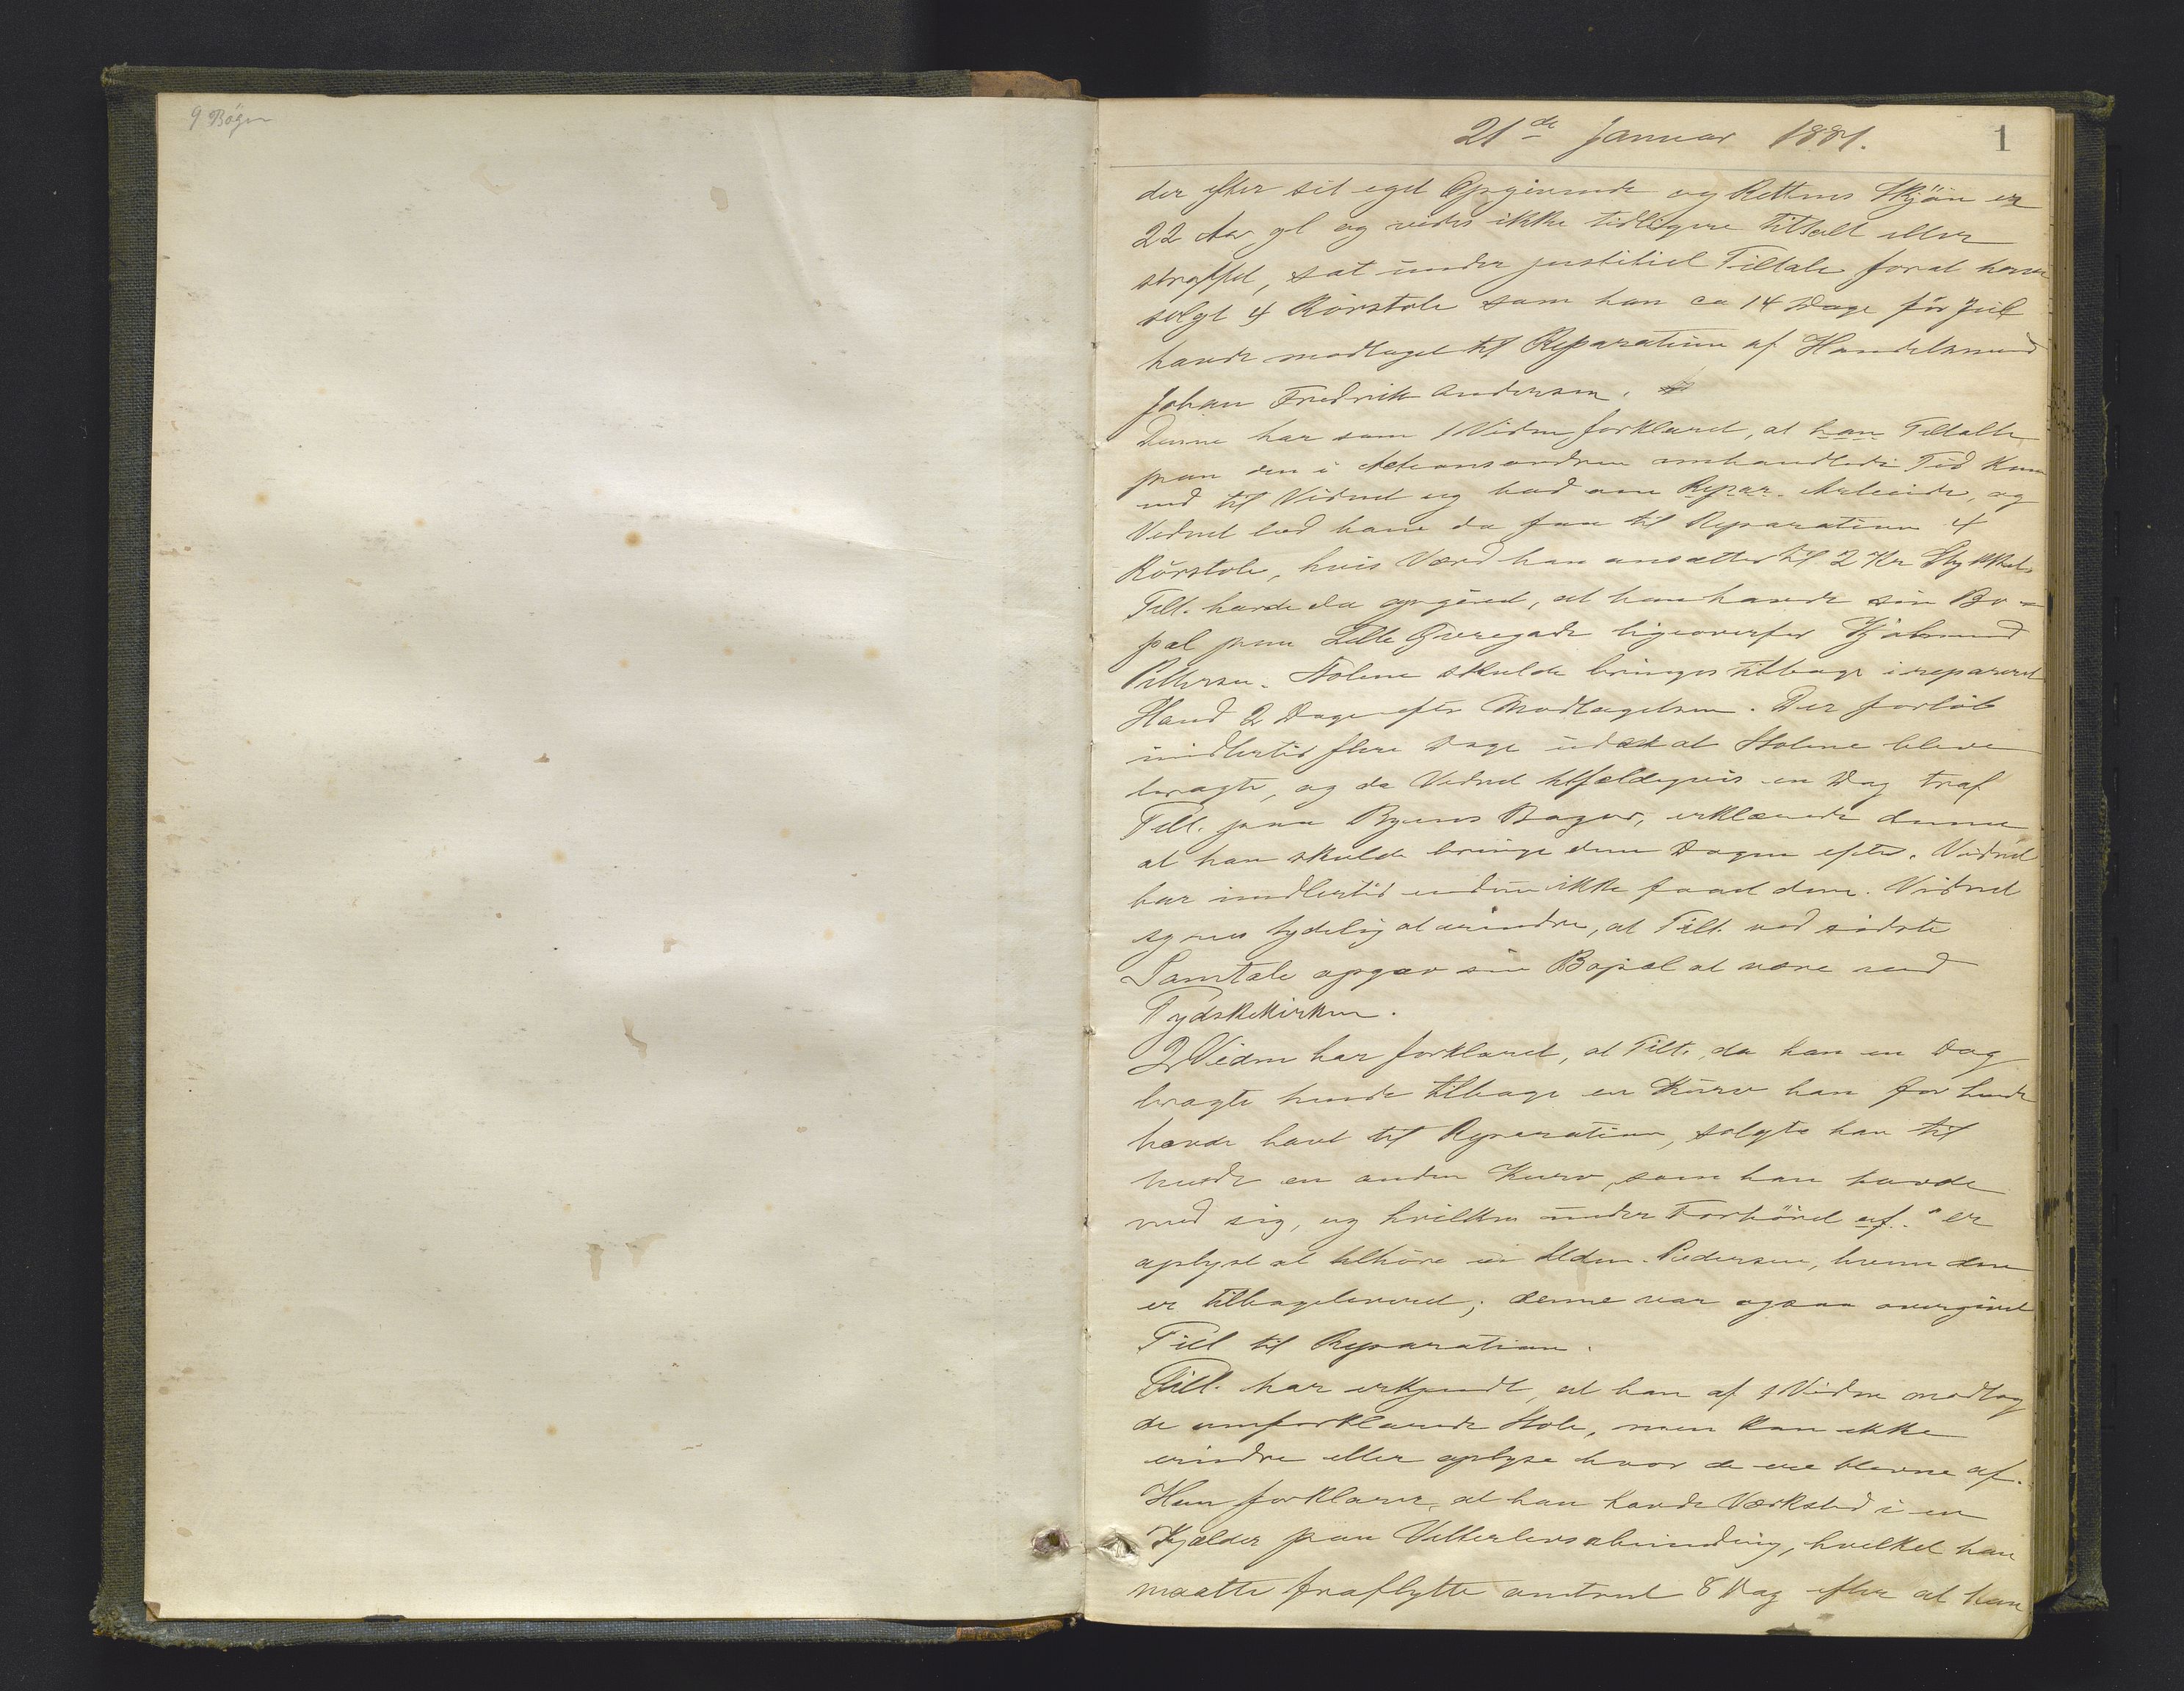 9 Bøger
21de Januar 1881.
1
der efter sit eget Opgivende og Rettens Skjøn er
22 Aar gl og vides ikke tidligere tiltalt eller
straffet, sat under justitiel Tiltale for at have
solgt 4 Rørstole som han ca 14 Dage før Juil
havde modtaget til Reparation af Handelsmand
Johan Fredrik Andersen.
Denne har som 1 Vidne forklaret, at han Tiltalte
paa den i Actionsordren omhandlede Tid kom
ind til Vidnet og bad om Repar. Arbeide, og
Vidnet lod ham da faa til Reparation 4
Rørstole, hvis Værd han ansætter til 2 Kr Stykket.
Tilt. havde da opgivet, at han havde sin Bo-
pæl paa Lille Øvregade ligeoverfor Kjøbmand
Pettersen. Stolene skulde bringes tilbage i repareret
Stand 2 Dage efter Modtagelsen. Der forløb
imidlertid flere Dage uden at Stolene bleve
bragte, og da Vidnet tilfældigvis en Dag traf
Tilt. paa Byens Bager, erklærede denne
at han skulde bringe dem Dagen efter. Vidnet
har imidlertid endnu ikke faaet dem. Vidnet
synes tydelig at erindre, at Tilt. ved sidste
Samtale opgav sin Bopæl at være ved
Tydskekirken.
2 Vidne har forklaret, at Tilt., da han en Dag
bragte hende tilbage en Kurv han for hende
havde havt til Reparation, solgte han til
hende en anden Kurv, som han havde
med sig, og hvilken under Forhöret af. er
oplyst at tilhøre en Mdm. Pedersen, hvem den
er tilbageleveret; denne var ogsaa overgivet
Tilt til Reparation.
Tilt. har erkjendt, at han af 1 Vidne modtog
de omforklarede Stole, men kan ikke
erindre eller oplyse hvor de ere blevne af.
Han forklarer, at han havde Værksted i en
Kjælder paa Vetterlevsalmending, hvilket han
maatte fraflytte omtrent 8 Dag efter at han